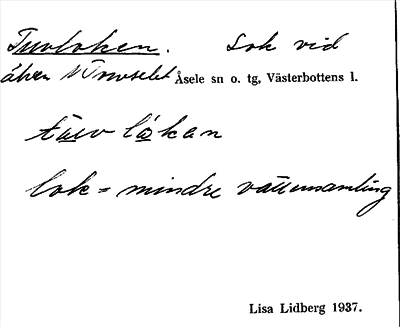 Tuvloken. Lok vid
älven N Torvselet Åsele sn o. tg, Västerbottens l.
tüv lókan
lok = mindre vattensamling
Lisa Lidberg 1937.